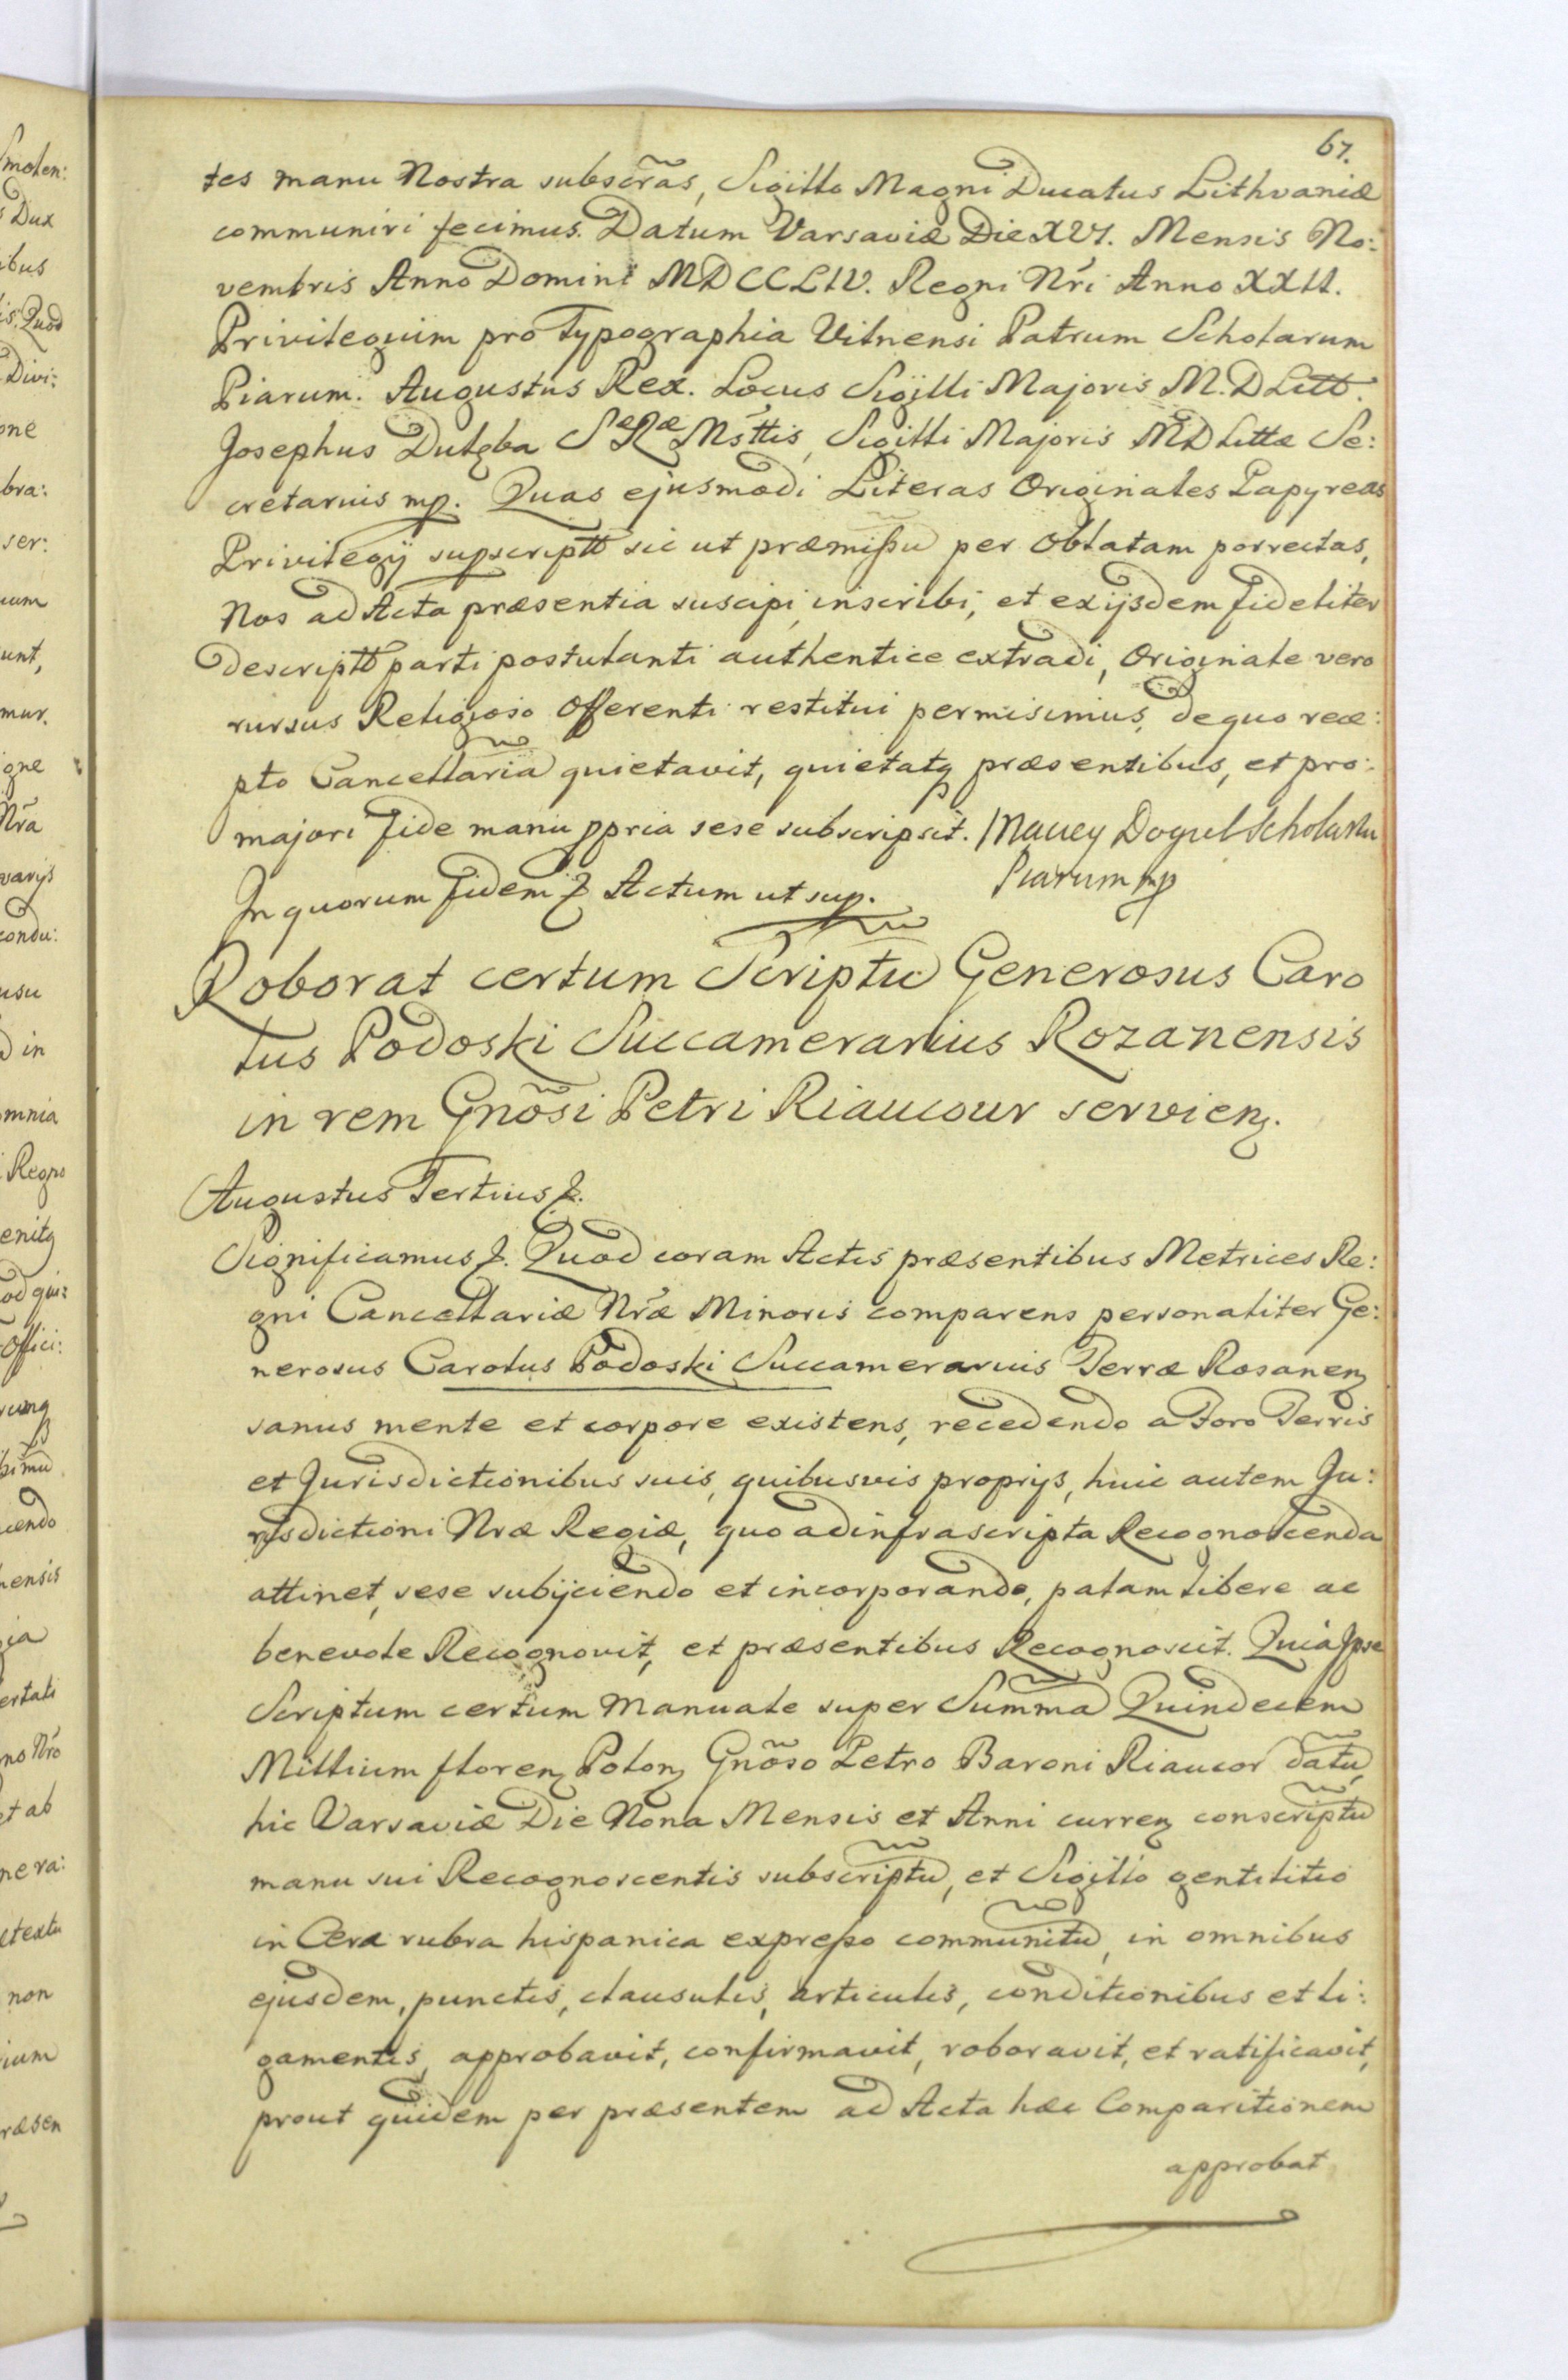 67.
tes manu Nostra subscr̃as, Sigillo Magni Ducatus Lithvaniæ
communiri fecimus. Datum Varsaviæ Die XVI. Mensis No:
vembris Anno Domini MDCCLIV. Regni Nr̃i Anno XXII.
Privilegium pro Typographia Vilnensi Patrum Scholarum
Piarum. Augustus Rex. Locus Sigilli Majoris M. D Litt.
Josephus Dulęba Sæ Ræ Ms̃ttis, Sigilli Majoris M D Littæ Se:
cretarius mp. Quas ejusmodi Literas Originales Papyreas
Privilegij supscriptt sic ut præmißũ per Oblatam porrectas,
Nos ad Acta præsentia suscipi, inscribi, et exijsdem fideliter
descriptt parti postulanti authentice extradi, Originale vero
rursus Religioso Offerenti restitui permisimus, de quo rece:
pto Cancellariã quietavit, quietatq præsentibus, et pro
majori fide manu ppria sese subscripsit. Maciey Dogiel Scholarũ
Piarum mp
In quorum fidem & Actum ut sup.
Roborat certum Scriptũ Generosus Caro
lus Podoski Succamerarius Rozanensis
in rem Gnõsi Petri Riaucour servienz.
Augustus Tertius &.
Significamus &. Quod coram Actis præsentibus Metrices Re:
gni Cancellariæ Nr̃æ Minoris comparens personaliter Ge:
nerosus Carolus Podoski Succamerarius Terræ Rosanenz
sanus mente et corpore existens, recedendo a Foro Terris
et Jurisdictionibus suis, quibusvis proprijs, huic autem Ju:
risdictioni Nræ Regiæ, quo ad infrascripta Recognoscenda
attinet, sese subijciendo et incorporando, palam libere ac
benevole Recognovit, et præsentibus Recognoscit. Quia Ipse
Scriptum certum Manuale super Summã Quindecem
Millium florenz Polonz Gnõso Petro Baroni Riaucor datũ,
hic Varsaviæ Die Nona Mensis et Anni currenz conscriptũ
manu sui Recognoscentis subscriptũ, et Sigillo gentilitio
in Cera rubra hispanica expreßo communitũ, in omnibus
ejusdem, punctis, clausulis, articulis, conditionibus et li:
gamentis, approbavit, confirmavit, roboravit, et ratificavit,
prout quidem per præsentem ad Acta hæc Comparitionem
approbat